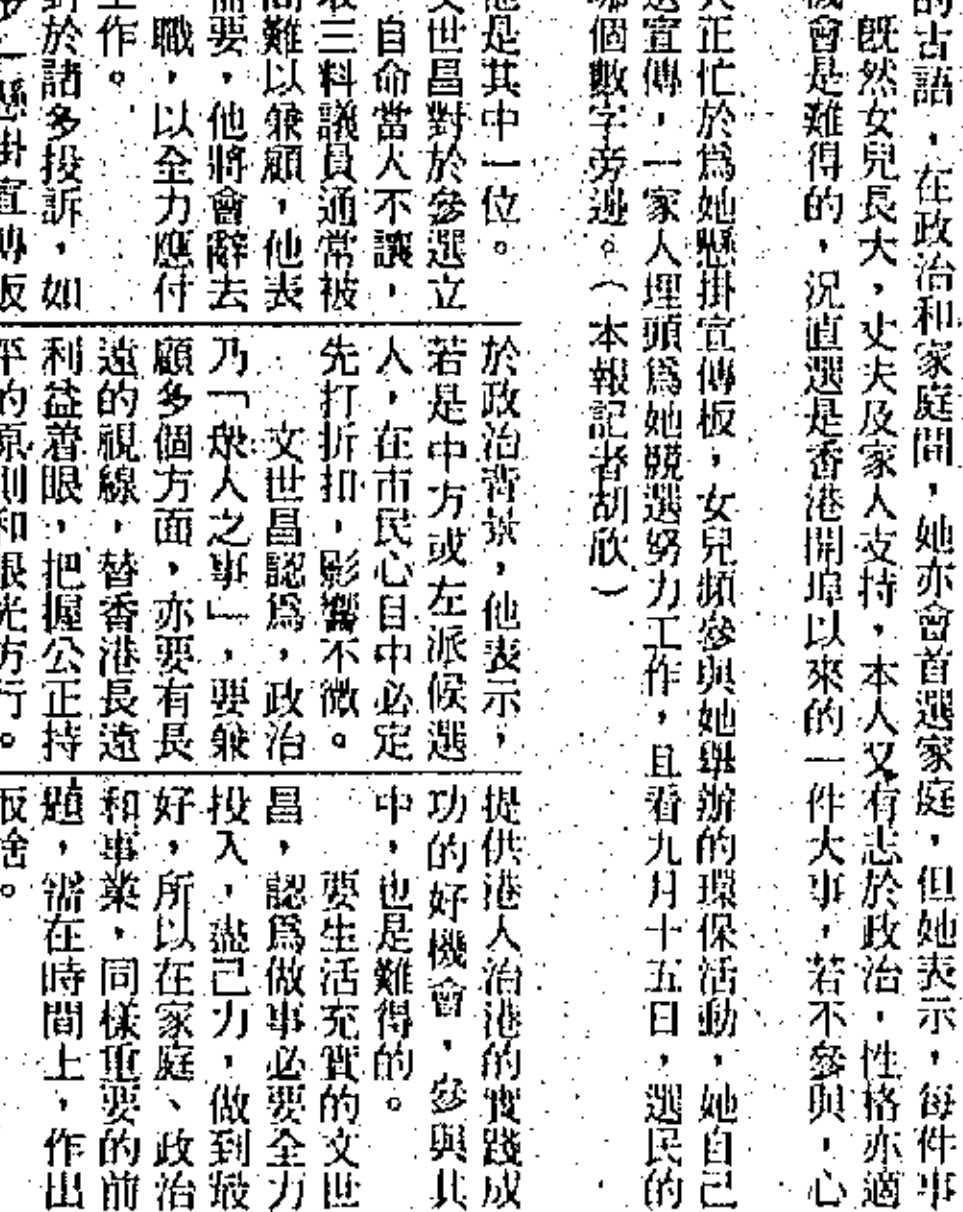 的古語，在政治和家庭間，她亦會首選家庭，但她表示，每件事
旣然女兒長大，丈夫及家人支持，本人又有志於政治，性格亦適
機會是難得的，況直選是香港開埠以來的一件大事，若不參與，心
正忙於爲她懸掛宣傳板，女兒頻參與她舉辦的環保活動，她自己
選宣傳，一家人埋頭爲她競選努力工作，且看九月十五日，選民的
哪個數字旁邊。（本報記者胡欣）
他是其中一位。
文世昌對於參選立
自命當人不讓，
三料議員通常被
難以兼顧，他表
需要，他將會辭去
職，以全力應付
工作。
對於諸多投訴，如
懸掛宣傳板
於政治背景，他表示，
若是中方或左派候選
人，在市民心目中必定
先打折扣，影響不微。
文世昌認爲，政治
乃「衆人之事」，要兼
顧多個方面，亦要有長
遠的視線，替香港長遠
利益着眼，把握公正持
平的原則和眼光方行。
提供港人治港的實踐成
功的好機會，參與其
中，也是難得的。
要生活充實的文世
昌，認爲做事必要全力
投入，盡己力，做到最
好，所以在家庭、政治
和事業，同樣重要的前
題，需在時間上，作出
取捨。